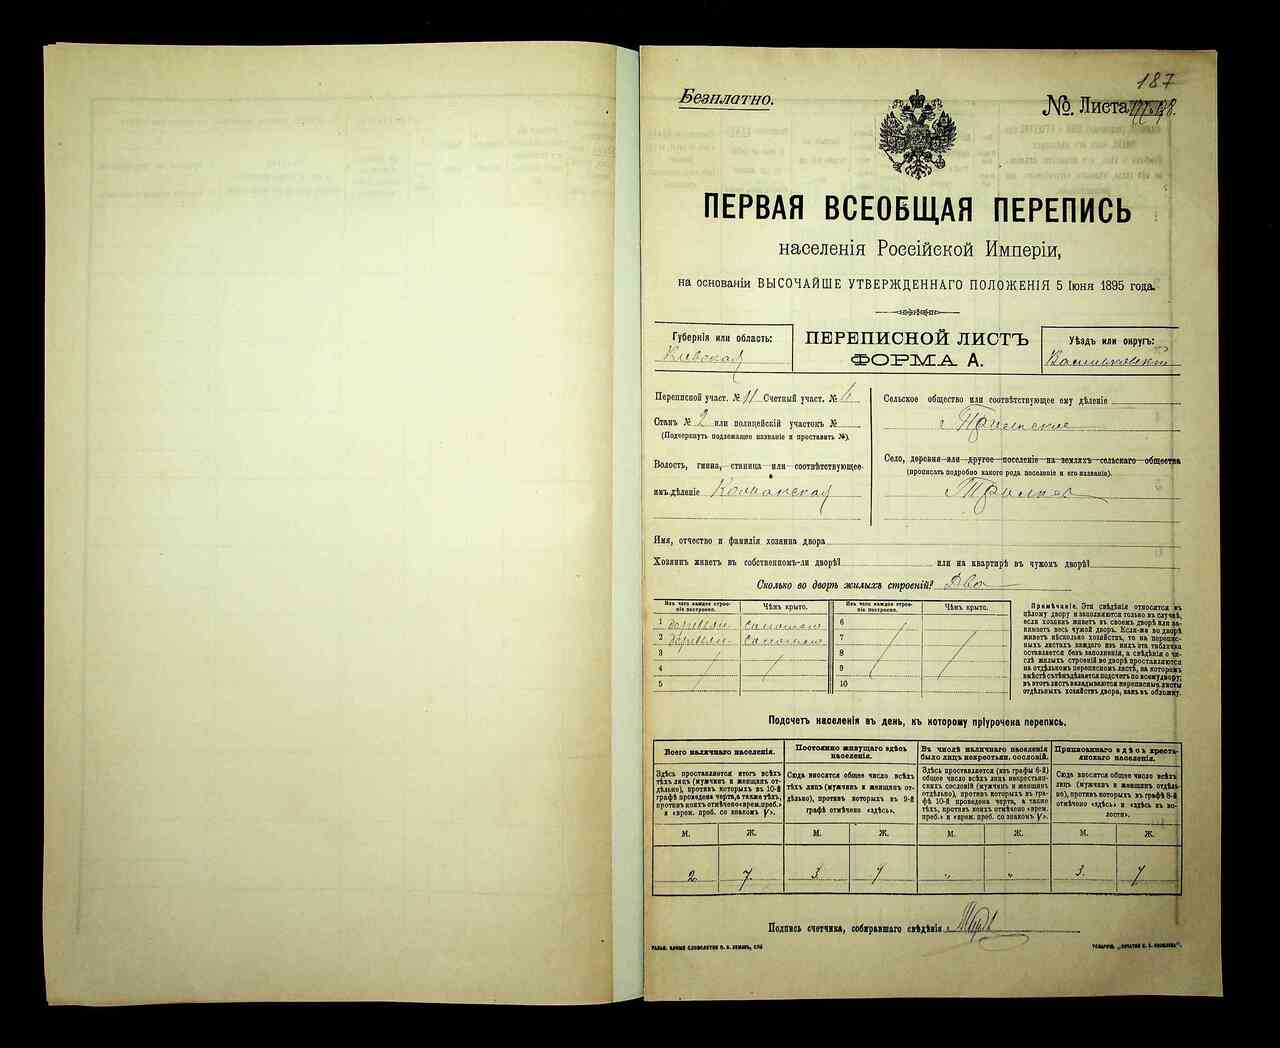 187
Безплатно.
№. Листа
ПЕРВАЯ ВСЕОБЩАЯ ПЕРЕПИСЬ
населенія Россійской Имперіи,
на основаніи ВЫСОЧАЙШЕ УТВЕРЖДЕННАГО ПОЛОЖЕНІЯ 5 Іюня 1895 года.
Губернія или область:
Кіевская
ПЕРЕПИСНОЙ ЛИСТЪ
ФОРМА А.
Уѣздъ или округъ:
Васильковскій
Переписной участ. № 11 Счетный участ. № 4
Станъ № 2 или полицейскій участокъ №
(Подчеркнуть подлежащее названіе и проставить №).
Волость, гмина, станица или соотвѣтствующее
имъ дѣленіе
Сельское общество или соотвѣтствующее ему дѣленіе
Село, деревня или другое поселеніе на земляхъ сельскаго общества
(прописать подробно какого рода поселеніе и его названіе).
Имя, отчество и фамилія хозяина двора
Хозяинъ живетъ въ собственномъ-ли дворѣ?
или на квартирѣ въ чужомъ дворѣ?
Сколько во дворѣ жилыхъ строеній? Два
Изъ чего каждое строеніе построено.
Чѣмъ крыто.
Изъ чего каждое строеніе построено.
Чѣмъ крыто.
1 деревян. соломою
2 деревян. соломою
3
4
5
6
7
8
9
10
Примѣчаніе. Эти свѣдѣнія относятся къ
цѣлому двору и заполняются только въ случаѣ,
если хозяинъ живетъ въ своемъ дворѣ или занимаетъ
весь чужой дворъ. Если-же во дворѣ
живетъ нѣсколько хозяйствъ, то на переписныхъ
листахъ каждаго изъ нихъ эта табличка
оставляется безъ заполненія, а свѣдѣнія о числѣ
жилыхъ строеній во дворѣ проставляются
на отдѣльномъ переписномъ листѣ, на которомъ
вмѣстѣ съ тѣмъ дѣлается подсчетъ по всему двору;
въ этотъ листъ вкладываются переписные листы
отдѣльныхъ хозяйствъ двора, какъ въ обложку.
Подсчетъ населенія въ день, къ которому пріурочена перепись.
Всего наличнаго населенія.
Здѣсь проставляется итогъ всѣхъ
тѣхъ лицъ (мужчинъ и женщинъ отдѣльно),
противъ которыхъ въ 10-й
графѣ проведена черта, а также тѣхъ,
противъ коихъ отмѣчено «врем. преб.»
и «врем. преб. со знакомъ V».
Постоянно живущаго здѣсь
населенія.
Сюда вносится общее число всѣхъ
тѣхъ лицъ (мужчинъ и женщинъ отдѣльно),
противъ которыхъ въ 9-й
графѣ отмѣчено «здѣсь».
Въ числѣ наличнаго населенія
было лицъ некрестьян. сословій.
Здѣсь проставляется (изъ графы 6-й)
общее число всѣхъ лицъ некрестьянскихъ
сословій (мужчинъ и женщинъ
отдѣльно), противъ которыхъ въ графѣ
10-й проведена черта, а также
тѣхъ, противъ коихъ отмѣчено «врем.
преб.» и «врем. преб. со знакомъ V».
Приписаннаго здѣсь крестьянскаго
населенія.
Сюда вносится общее число всѣхъ
лицъ (мужчинъ и женщинъ отдѣльно),
противъ которыхъ въ графѣ 8-й
отмѣчено «здѣсь» и «здѣсь въ волости».
М. Ж. М. Ж. М. Ж. М. Ж.
2 7 3 7 „ „ 3 7
Подпись счетчика, собиравшаго свѣдѣнія